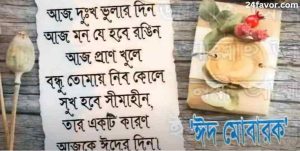 24favor.com
আজ দুঃখ ভুলার দিন
আজ মন যে হবে রঙিন
আজ প্রাণ খুলে
বন্ধু তোমায় নিব কোলে
সুখ হবে সীমাহীন,
তার একটি কারণ
আজকে ঈদের দিন।
'ঈদ মোবারক'